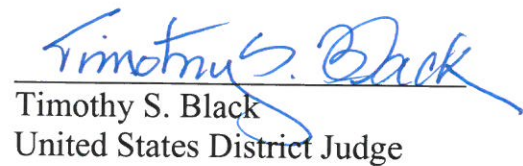 Timothy S. Black
Timothy S. Black
United States District Judge